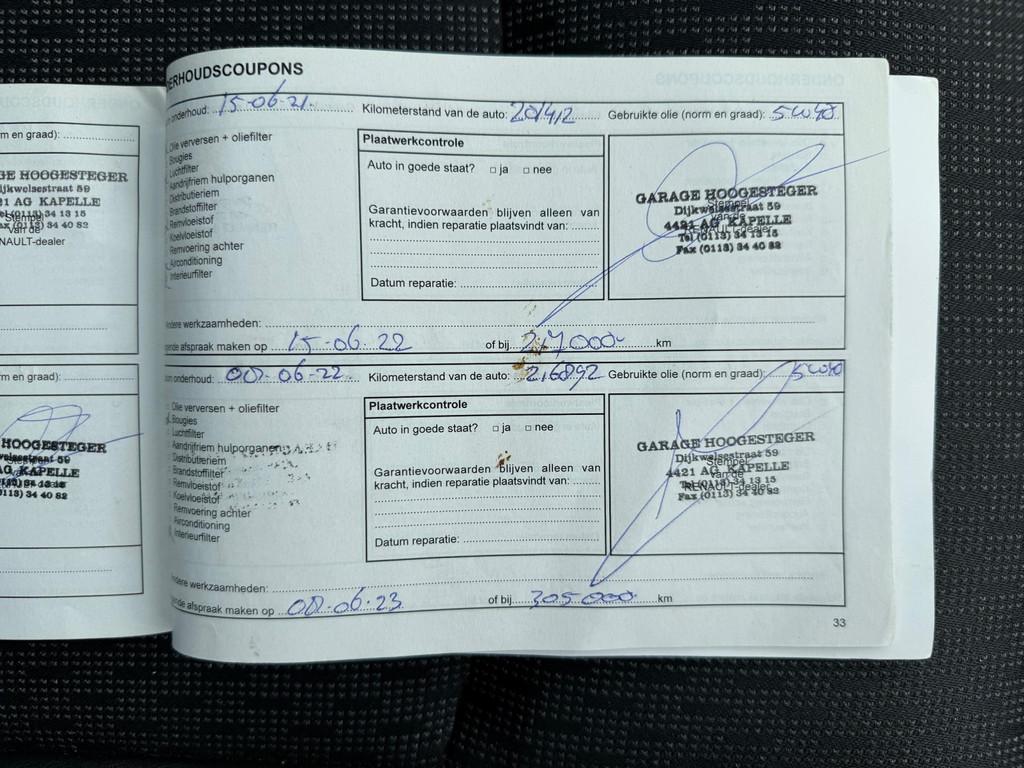 m en graad):
GE HOOGESTEGER
ijkwelsestraat 59
21 AG KAPELLE
(0113) 34 13 15
Stempel
van de
(0113) 34 40 82
NAULT-dealer
m en graad):
HOOGESTEGER
59
AG KAPELLE
0113) 34 40 82
ERHOUDSCOUPONS
onderhoud: 15-06-21
Kilometerstand van de auto:
Gebruikte olie (norm en graad): 5w40
Olie verversen + oliefilter
Bougies
Luchtfilter
Aandrijfriem hulporganen
Distributieriem
Brandstoffilter
Remvloeistof
Koelvloeistof
Remvoering achter
Airconditioning
Interieurfilter
Plaatwerkcontrole
Auto in goede staat? ja nee
Garantievoorwaarden blijven alleen van
kracht, indien reparatie plaatsvindt van:
Datum reparatie:
GARAGE HOOGESTEGER
Dijkwelsestraat 59
Stempel
van de
4421 AG KAPELLE
RENAULT-dealer
Tel (0113) 34 13 15
Fax (0113) 34 40 82
dere werkzaamheden:
ende afspraak maken op 15-06-22 of bij km
onderhoud: 00-06-22
Kilometerstand van de auto: 216892
Gebruikte olie (norm en graad): 5w40
Olie verversen + oliefilter
Bougies
Luchtfilter
Aandrijfriem hulporganen
Distributieriem
Brandstoffilter
Remvloeistof
Koelvloeistof
Remvoering achter
Airconditioning
Interieurfilter
Plaatwerkcontrole
Auto in goede staat? ja nee
Garantievoorwaarden blijven alleen van
kracht, indien reparatie plaatsvindt van:
Datum reparatie:
GARAGE HOOGESTEGER
Dijkwelsestraat 59
Stempel
4421 AG KAPELLE
van de
Tel (0113) 34 13 15
RENAULT-dealer
Fax (0113) 34 40 82
dere werkzaamheden:
ende afspraak maken op 00-06-23 of bij 305000 km
33